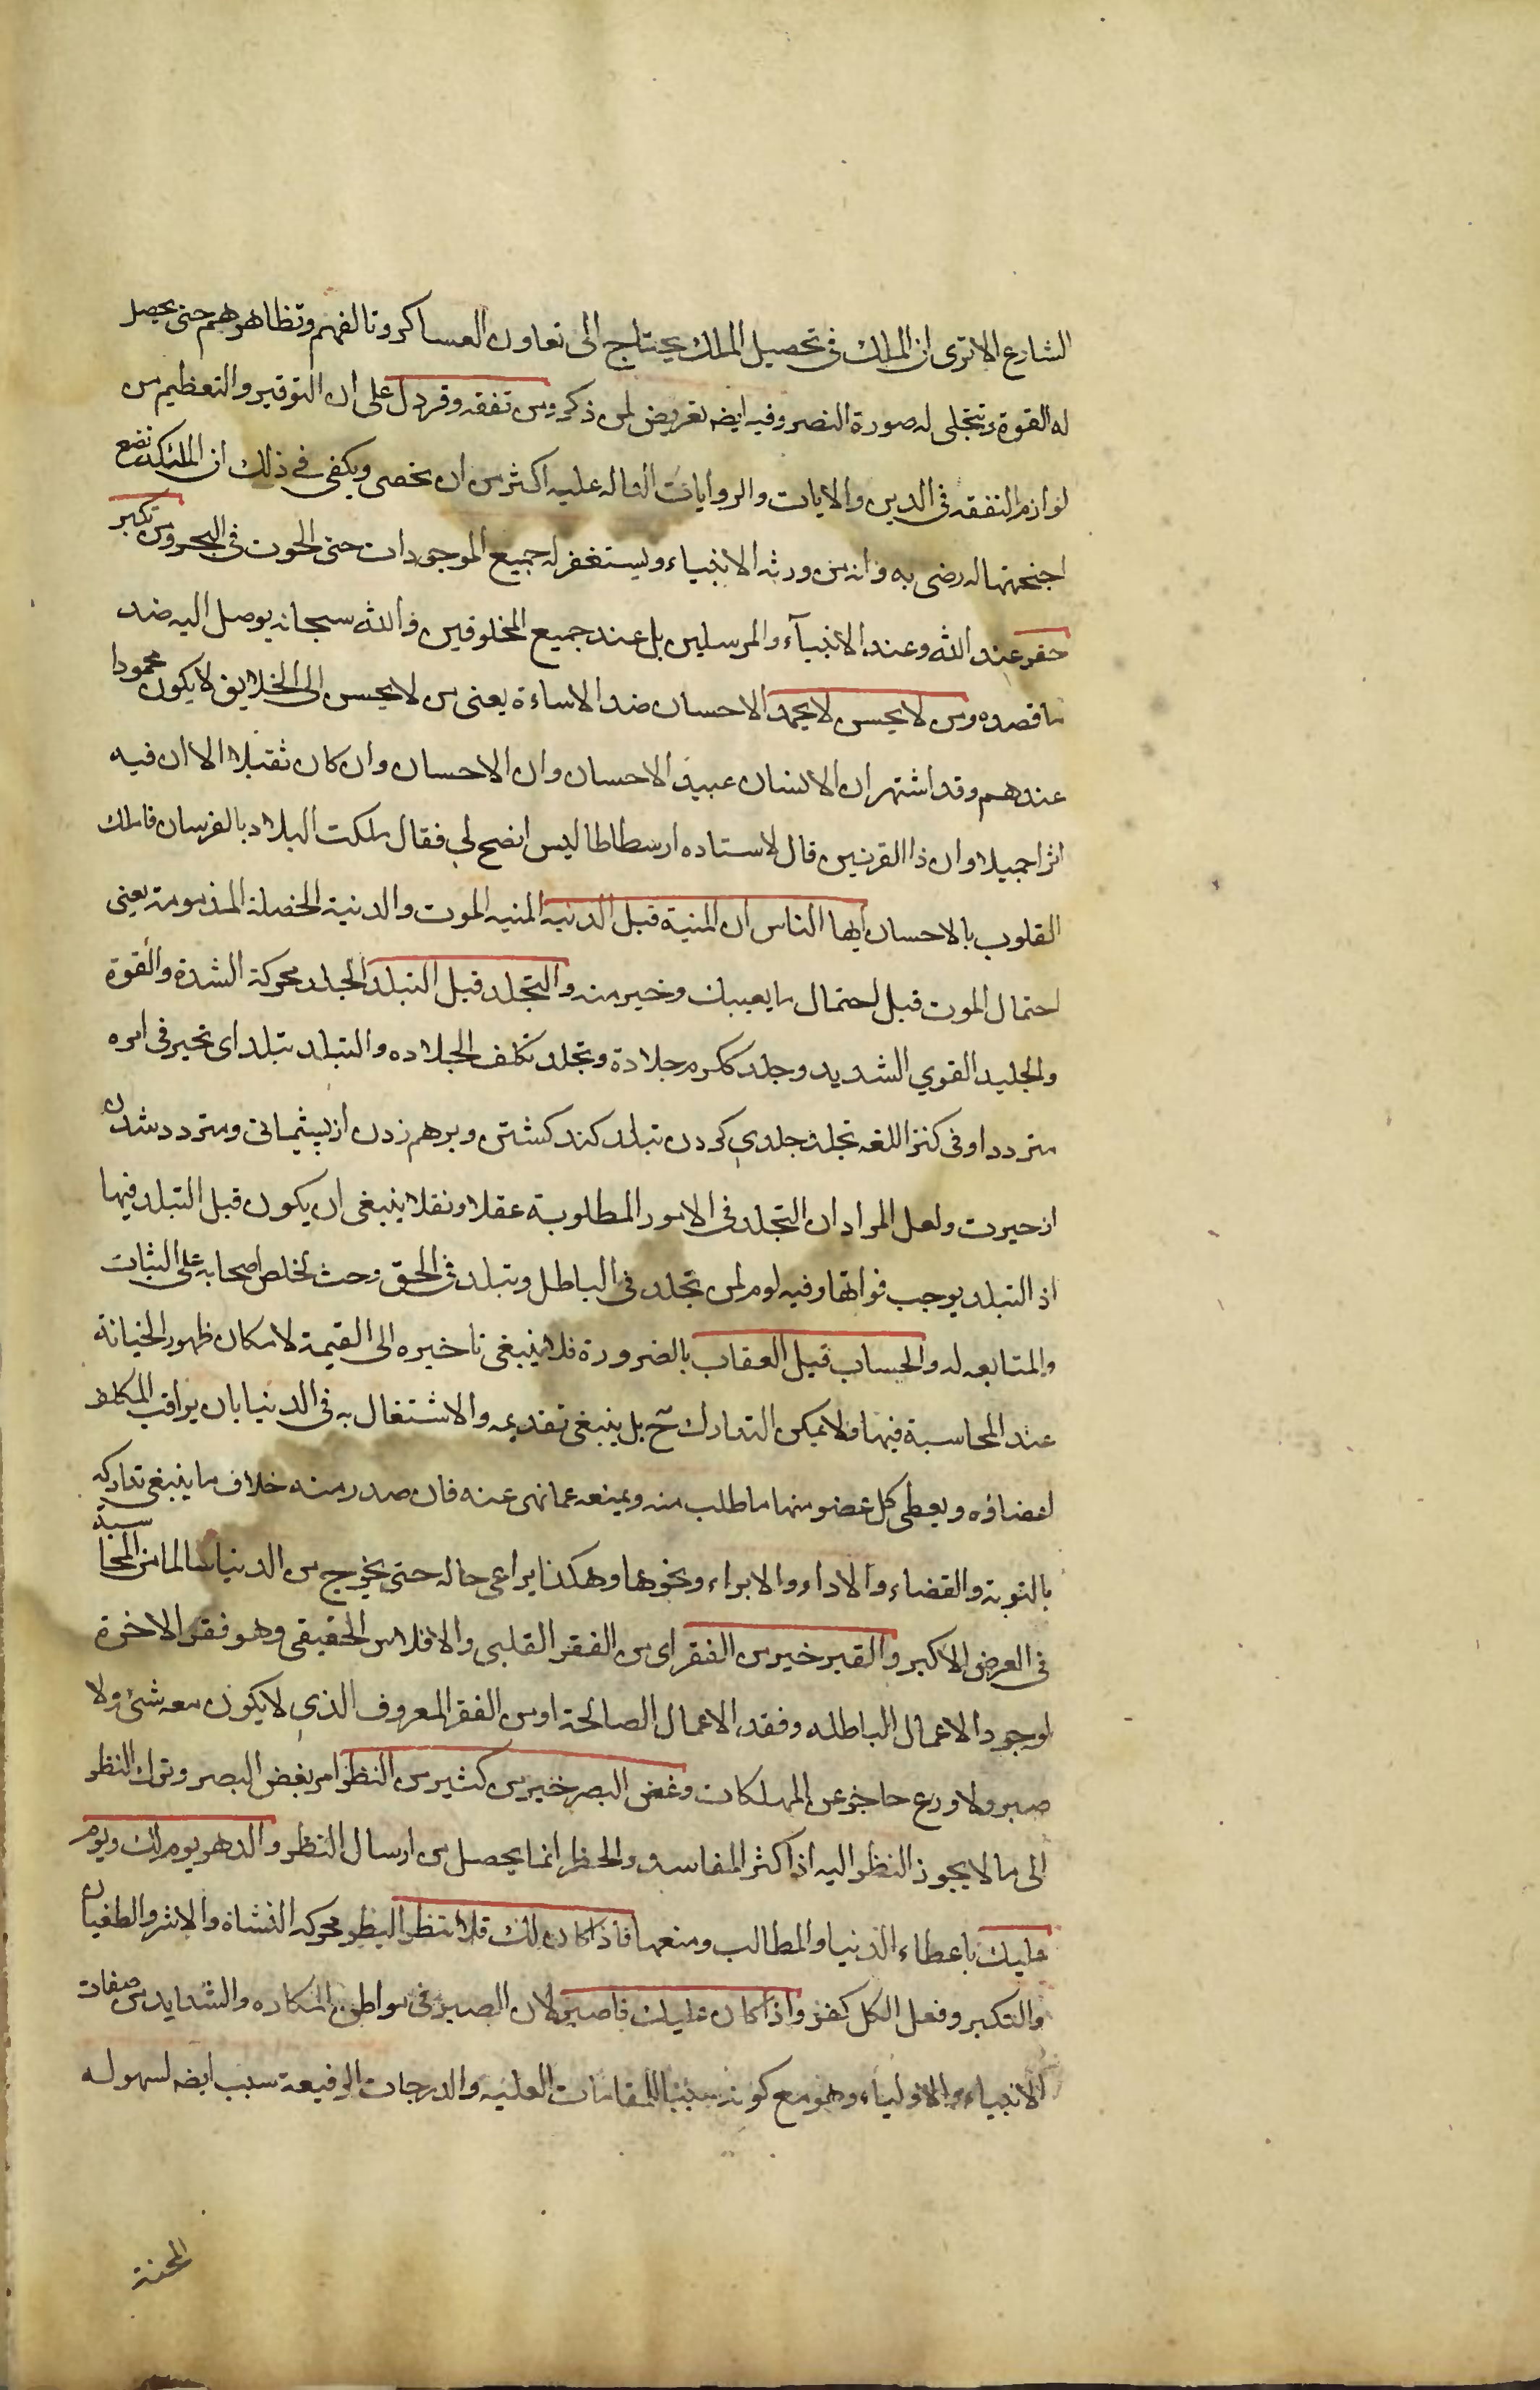 الشارع الا ترى ان الملك فى تحصيل الملك يحتاج الى تعاون العساكر وتالفهم وتظاهرهم حتى يحصل
له القوة ويتجلى له صورة النصر وفيه ايضه تعريض لمن ذكر ومن تفقه وقر دل على ان التوقير والتعظيم من
لوازم التفقه فى الدين والايات والروايات الداله عليه اكثر من ان تحصى ويكفى فى ذلك ان الملئكة تضع
اجنحتها له رضى به وانه من ورثه الانبياء ويستغفر له جميع الموجودات حتى الحوت فى البحر ومن تكبر
حقر عند الله وعند الانبيآء والمرسلين بل عند جميع المخلوقين والله سبحانه يوصل اليه ضد
ما قصده ومن لا يحسن لا يحمد الاحسان ضد الاساءة يعنى من لا يحسن الى الخلايق لا يكون محمودا
عندهم وقد اشتهر ان الانسان عبيد الاحسان وان الاحسان وان كان ثقيلا الا ان فيه
اثرا جميلا وان ذا القرنين قال لاستاده ارسطاطاليس انصح لي فقال ملكت البلاد بالفرسان فاملك
القلوب بالاحسان ايها الناس ان المنية قبل الدنيه المنيه الموت والدنية الخصلة المذمومة يعنى
احتمال الموت قبل احتمال ما يعيبك وخير منه والتجلد قبل التبلد الجلد محركة الشدة والقوة
والجليد القوي الشديد وجلد ككرم جلادة وتجلد تكلف الجلاده والتبلد تبلد اى تحير فى امره
متردد او فى كنز اللغه تجلد جلدي كردن تبلد كند كشتن وبرهم زدن از پشيمانى ومتردد شدن
از حيرت ولعل المراد ان التجلد فى الامور المطلوبة عقلا ونقلا ينبغى ان يكون قبل التبلد فيها
اذ التبلد يوجب فواتها وفيه لوم لمن تجلد فى الباطل وتبلد فى الحق وحث لخلص اصحابه على الثبات
والمتابعه له والحساب قبل العقاب بالضرورة فلا ينبغى تاخيره الى القيمة لامكان ظهور الخيانة
عند المحاسبة فيها ولا يمكن التدارك ح بل ينبغى تقديمه والاشتغال به فى الدنيا بان يراقب المكلف
اعضاؤه ويعطى كل عضو منها ما طلب منه ويمنعه عما نهى عنه فان صدر منه خلاف ما ينبغى تداركه
بالتوبة والقضاء والاداء والابراء ونحوها وهكذا يراعى حاله حتى يخرج من الدنيا سالما من المحاسبة
فى العرض الاكبر والقبر خير من الفقر اى من الفقر القلبى والافلاس الحقيقى وهو فقر الاخرة
لوجود الاعمال الباطله وفقد الاعمال الصالحة او من الفقر المعروف الذي لا يكون معه شئ ولا
صبر ولا ورع حاجز عن المهلكات وغض البصر خير من كثير من النظر امر بغض البصر وترك النظر
الى ما لا يجوز النظر اليه اذ اكثر المفاسد والحظر انما يحصل من ارسال النظر والدهر يوم لك ويوم
عليك باعطاء الدنيا والمطالب ومنعها فاذا كان لك فلا تبطر البطر محركه النشاة والاشر والطغيان
والتكبر وفعل الكل كفر واذا كان عليك فاصبر لان الصبر فى مواطن المكاره والشدايد من صفات
الانبياء والاولياء وهو مع كونه سببا للمقامات العليه والدرجات الرفيعة سبب ايضه لسهوله
المحنة